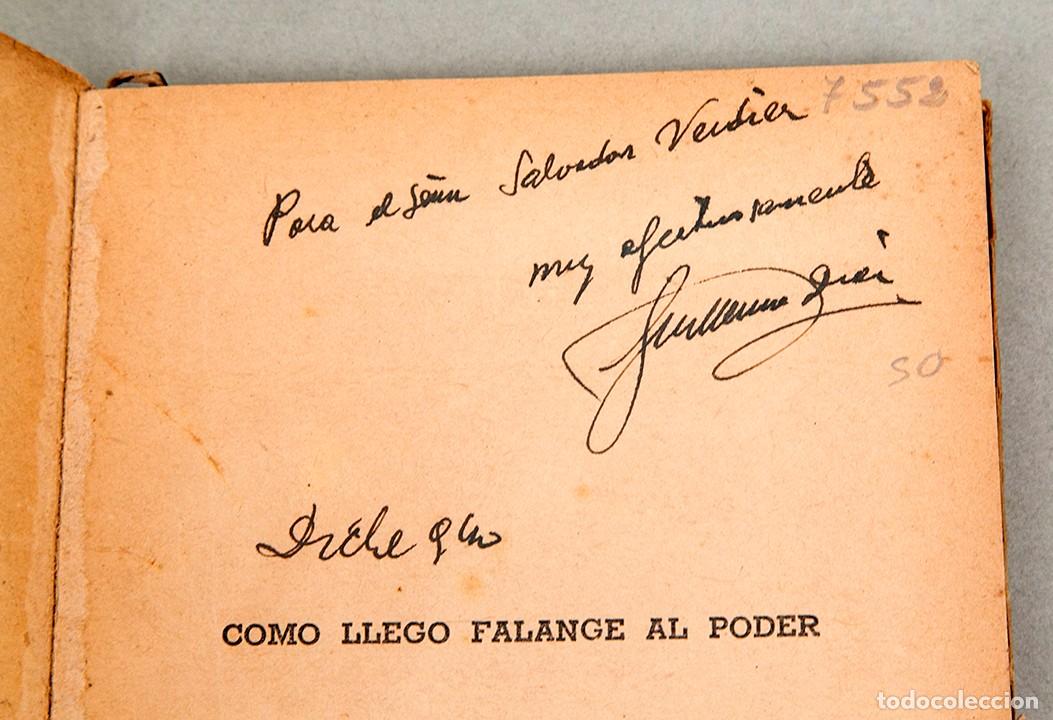 7552
Para el señor Salvador Verdier
muy afectuosamente
Guillermo
50
COMO LLEGO FALANGE AL PODER
todocoleccion